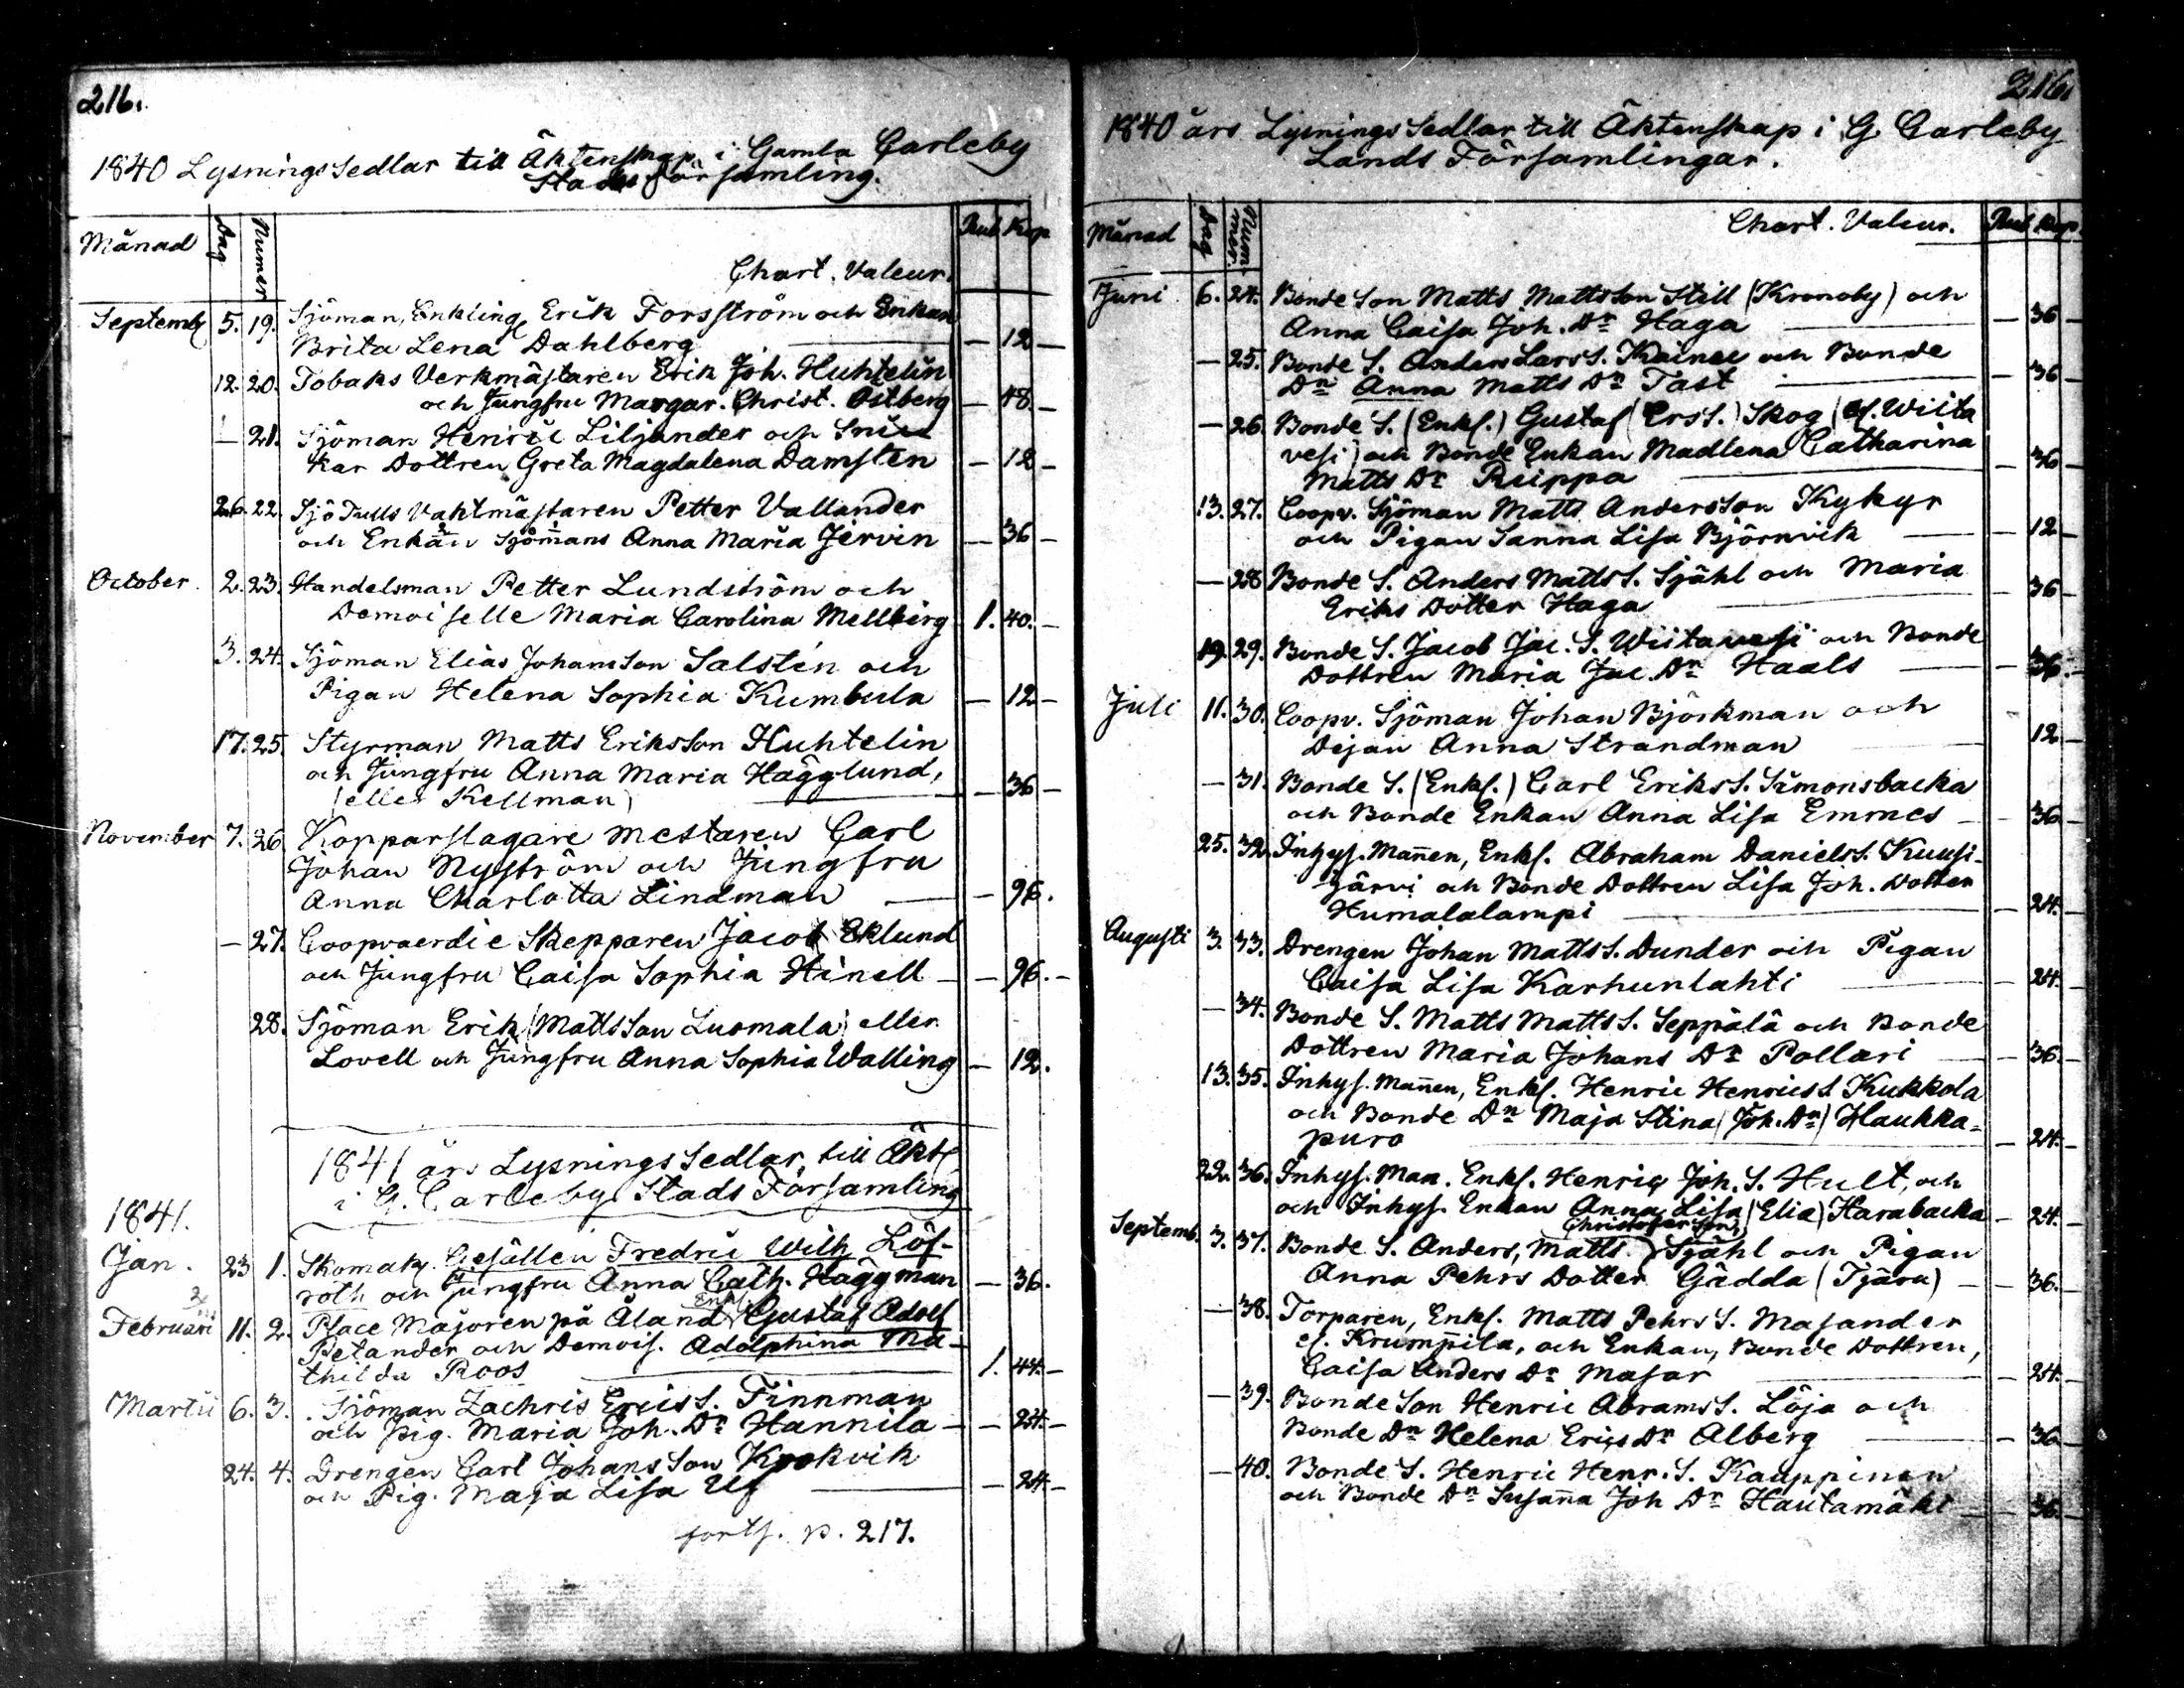 216.
1840 Lysnings Sedlar till Äktenskap i Gamla Carleby
Stads Församling.
Månad Dag Numer Chart. Valeur. Rub Kop
Septemb 5. 19. Sjöman, Enkling Erik Forsström och Enkan
Brita Lena Dahlberg — 12 —
12. 20. Tobaks Verkmästaren Erik Joh. Huhtelin
och Jungfru Margar. Christ. Östberg — 48. —
— 21. Sjöman Henric Liljander och Snic
kar Dottren Greta Magdalena Damsten — 12 —
26. 22. Sjö Tulls Vaktmästaren Petter Vallander
och Enkan Sjömans Anna Maria Jervin — 36 —
October. 2. 23. Handelsman Petter Lundström och
Demoiselle Maria Carolina Mellberg 1. 40. —
3. 24. Sjöman Elias Johansson Salstén och
Pigan Helena Sophia Kumbula — 12 —
17. 25. Styrman Matts Eriksson Huhtelin
och Jungfru Anna Maria Hägglund,
(eller Kellman) — 36 —
November 7. 26. Kopparslagare Mestaren Carl
Johan Nyström och Jungfru
Anna Charlotta Lindman — 96.
— 27. Coopvaerdie Skepparen Jacob Eklund
och Jungfru Caisa Sophia Hinell — 96. —
28. Sjöman Erik (Mattsson Luomala) eller
Lovell och Jungfru Anna Sophia Walling — 12.
1841 års Lysnings Sedlar, till Äkt.
i G. Carleby Stads Församling
1841.
Jan. 23 1. Skomak. Gesällen Fredric Wilh. Löf-
roth och Jungfru Anna Cath. Häggman — 36.
Februari 11. 2. Place Majoren på Åland Enkl. Gustaf Adolf
Petander och Demois. Adolphina Ma-
thilda Roos 1. 44. —
Martii 6. 3. Sjöman Zachris Erics S. Finnman
och Pig. Maria Joh. Dr Hannila — 24. —
24. 4. Drengen Carl Johansson Krokvik
och Pig. Maja Lisa Uf — 24 —
forts. p. 217.
216.
1840 års Lysnings Sedlar till Äktenskap i G. Carleby
Lands Församlingar.
Månad Dag Num-mer. Chart. Valeur. Rub Kop.
Juni 6. 24. Bonde Son Matts Mattsson Still (Kronoby) och
Anna Caisa Joh. Dr Haga — 36 —
— 25. Bonde S. Anders Lars S. Kainee och Bonde
Dn Anna Matts Dr Tast — 36 —
— 26. Bonde S. (Enkl.) Gustaf (Ers S.) Skog (el. Wiita
vesi) och Bonde Enkan Madlena Catharina
Matts Dr Riippa — 36 —
13. 27. Coopv. Sjöman Matts Andersson Kykyr
och Pigan Sanna Lisa Björnvik — 12 —
— 28 Bonde S. Anders Matts S. Sjähl och Maria
Eriks Dotter Haga 36 —
19. 29. Bonde S. Jacob Jac. S. Wiitavesi och Bonde
Dottren Maria Jac. Dr Haals — 36. —
Juli 11. 30. Coopv. Sjöman Johan Björkman och
Dejan Anna Strandman 12 —
— 31. Bonde S. (Enkl.) Carl Eriks S. Simonsbacka
och Bonde Enkan Anna Lisa Emmes — 36 —
25. 32. Inhys. Mannen, Enkl. Abraham Daniels S. Kuusi-
järvi och Bonde Dottren Lisa Joh. Dotter
Humalalampi — 24. —
Augusti 3. 33. Drengen Johan Matts S. Dunder och Pigan
Caisa Lisa Karhunlahti — 24. —
— 34. Bonde S. Matts Matts S. Seppälä och Bonde
Dottren Maria Johans Dr Pollari — 36. —
13. 35. Inhys. Mannen, Enkl. Henric Henrics S. Kukkola
och Bonde Dn Maja Stina (Joh. Dn) Haukka-
puro — 24. —
22. 36. Inhys. Man. Enkl. Henric Joh. S. Hult, och
och Inhys. Enkan Anna Lisa (Elia) Harabacka — 24. —
Septemb. 3. 37. Bonde S. Anders, Matts Christofersson Sjähl och Pigan
Anna Pehrs Dotter Gädda (Tjäru) — 36. —
— 38. Torparen, Enkl. Matts Pehrs S. Masander
el. Krumpila, och Enkan, Bonde Dottren,
Caisa Anders Dr Masar — 24. —
— 39. Bonde Son Henric Abrams S. Löja och
Bonde Dn Helena Erics Dr Alberg — 36 —
— 40. Bonde S. Henric Henr. S. Kauppinen
och Bonde Dn Susanna Joh Dr Hautamäki — 36. —